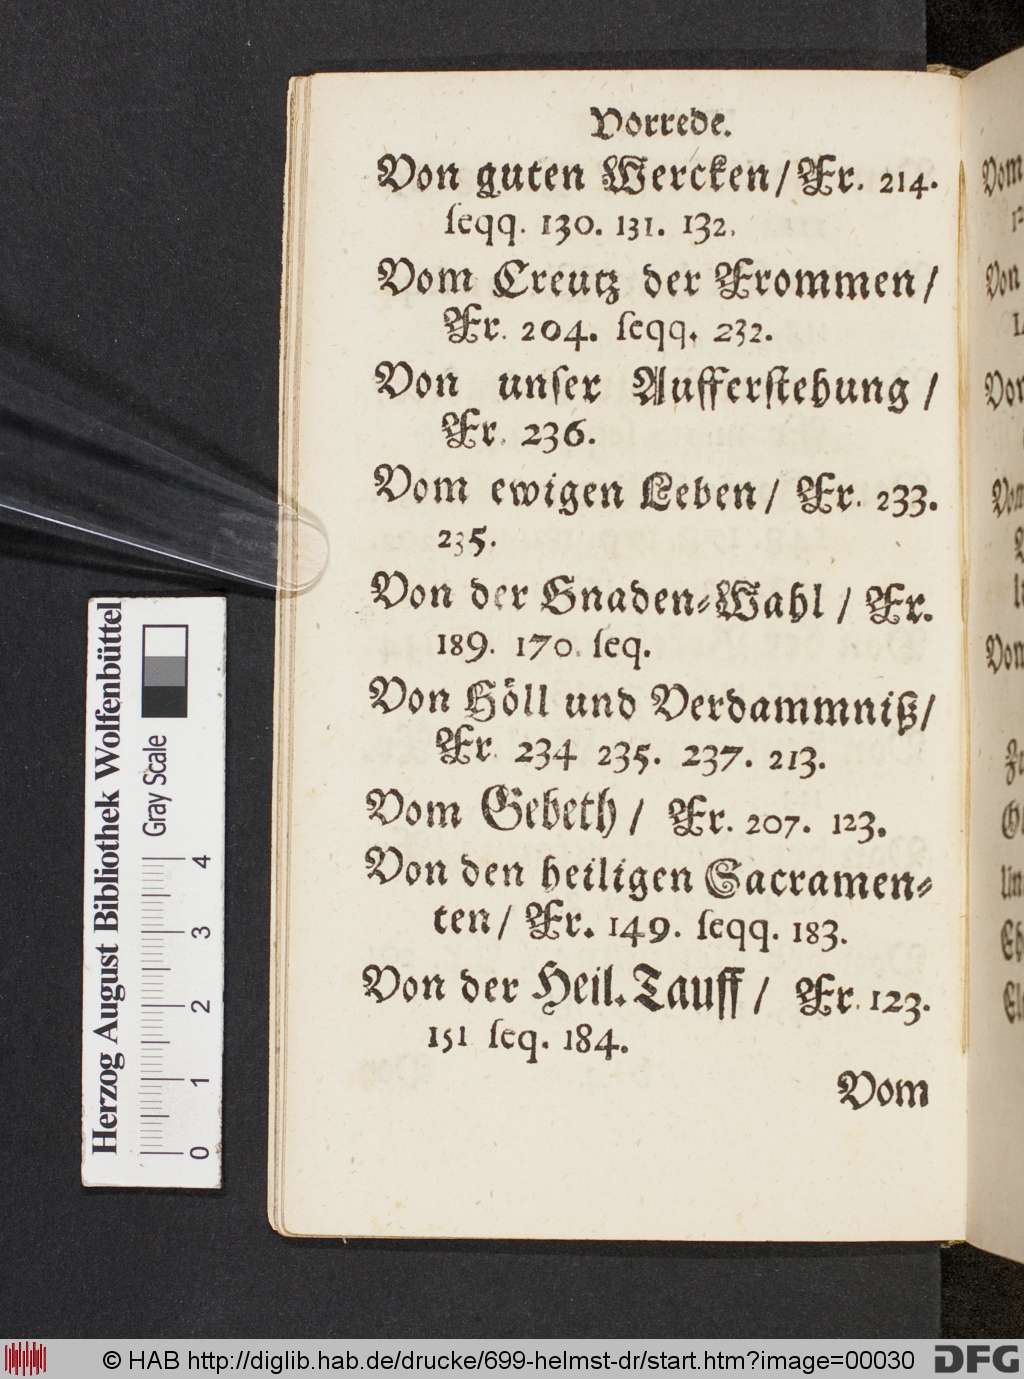 Vorrede.
Von guten Wercken / Fr. 214.
ſeqq. 130. 131. 132.
Vom Creutz der Frommen /
Fr. 204. ſeqq. 232.
Von unſer Aufferſtehung /
Fr. 236.
Vom ewigen Leben / Fr. 233.
235.
Von der Gnaden-Wahl / Fr.
189. 170. ſeq.
Von Höll und Verdammniß /
Fr. 234 235. 237. 213.
Vom Gebeth / Fr. 207. 123.
Von den heiligen Sacramen-
ten / Fr. 149. ſeqq. 183.
Von der Heil. Tauff / Fr. 123.
151 ſeq. 184.
Vom
Herzog August Bibliothek Wolfenbüttel
Gray Scale
0 1 2 3 4
© HAB http://diglib.hab.de/drucke/699-helmst-dr/start.htm?image=00030
DFG